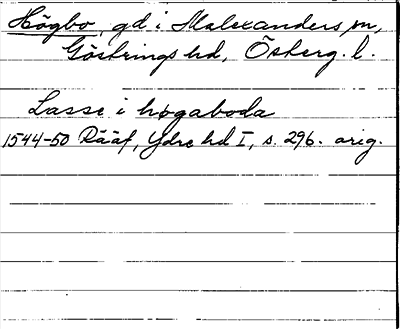 Högbo, gd i Malexanders sn,
Göstrings hd, Österg. l.
Lasse i högaboda
1544-50 Rääf, Ydre hd I, s. 296. orig.